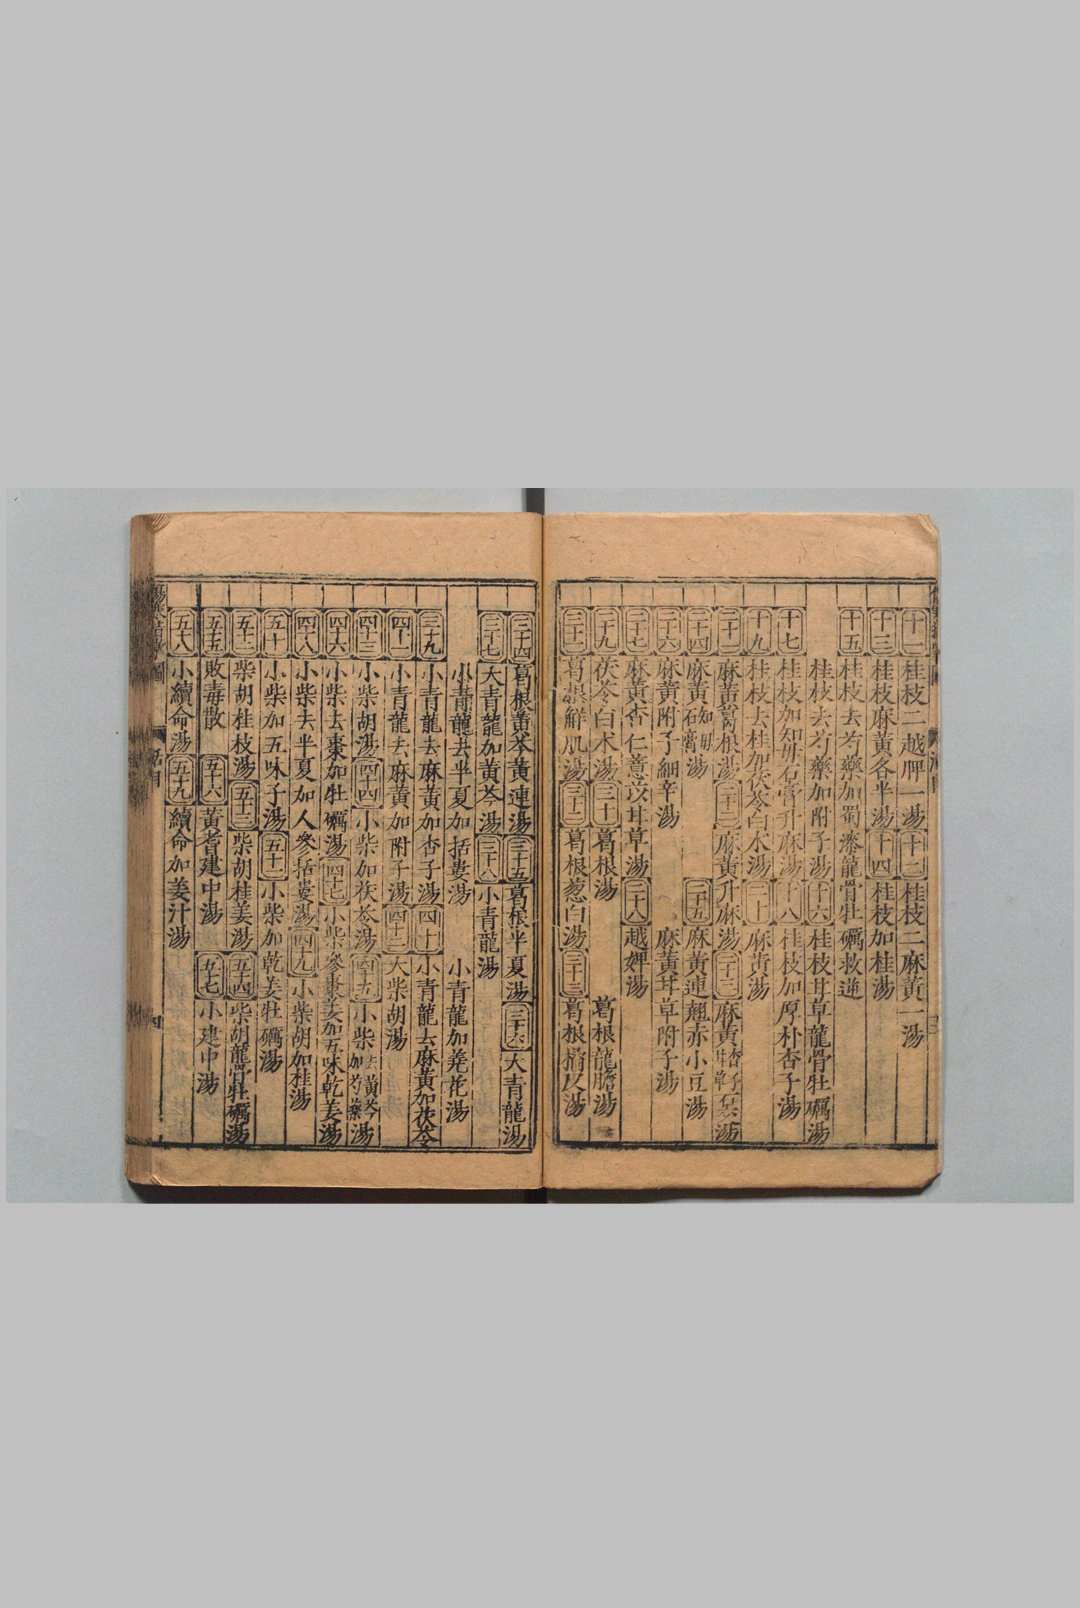 十一桂枝二越脾一湯十二桂枝二麻黃一湯
十三桂枝麻黃各半湯十四桂枝加桂湯
十五桂枝去芍藥加蜀漆龍骨牡礪救逆
桂枝去芍藥加附子湯十六桂枝甘草龍骨牡礪湯
十七桂枝加知母石膏升麻湯十八桂枝加厚朴杏子湯
十九桂枝去桂加茯苓白朮湯二十麻黃湯
二十一麻黃葛根湯二十二麻黃升麻湯二十三麻黃杏子甘草石羔湯
二十四麻黃知母石膏湯二十五麻黃連翹赤小豆湯
二十六麻黃附子細辛湯麻黃甘草附子湯
二十七麻黃杏仁薏苡甘草湯二十八越婢湯
二十九茯苓白朮湯三十葛根湯葛根龍膽湯
三十一葛根解肌湯三十二葛根葱白湯三十三葛根橘皮湯
三十四葛根黃芩黃連湯三十五葛根半夏湯三十六大青龍湯
三十七大青龍加黃芩湯三十八小青龍湯
小青龍去半夏加括蔞湯小青龍加蕘花湯
三十九小青龍去麻黃加杏子湯四十小青龍去麻黃加茯苓
四十一小青龍去麻黃加附子湯四十二大柴胡湯
四十三小柴胡湯四十四小柴加茯苓湯四十五小柴去黃芩加芍藥湯
四十六小柴去棗加牡礪湯四十七小柴參棗姜加五味乾姜湯
四十八小柴去半夏加人參括蔞湯四十九小柴胡加桂湯
五十小柴加五味子湯五十一小柴加乾姜牡礪湯
五十二柴胡桂枝湯五十三柴胡桂姜湯五十四柴胡龍骨牡礪湯
五十五敗毒散五十六黃耆建中湯五十七小建中湯
五十八小續命湯五十九續命加姜汁湯